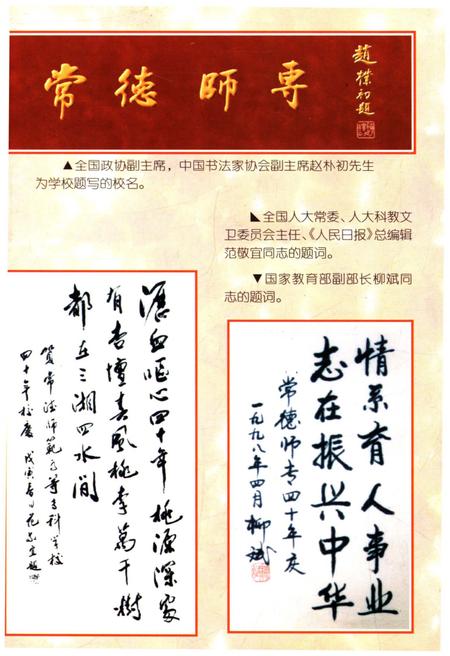 常德師專
趙樸初題
▲全国政协副主席，中国书法家协会副主席赵朴初先生
为学校题写的校名。
◣全国人大常委、人大科教文
卫委员会主任、《人民日报》总编辑
范敬宜同志的题词。
▼国家教育部副部长柳斌同
志的题词。
瀝血嘔心四十年 桃源深處
有杏壇春風桃李萬千樹
都在三湘四水間
賀常德師範高等專科学校
四十年校慶 戊寅春日范敬宜題
情系育人事业
志在振兴中华
常德师专四十年庆
一九九八年四月 柳斌